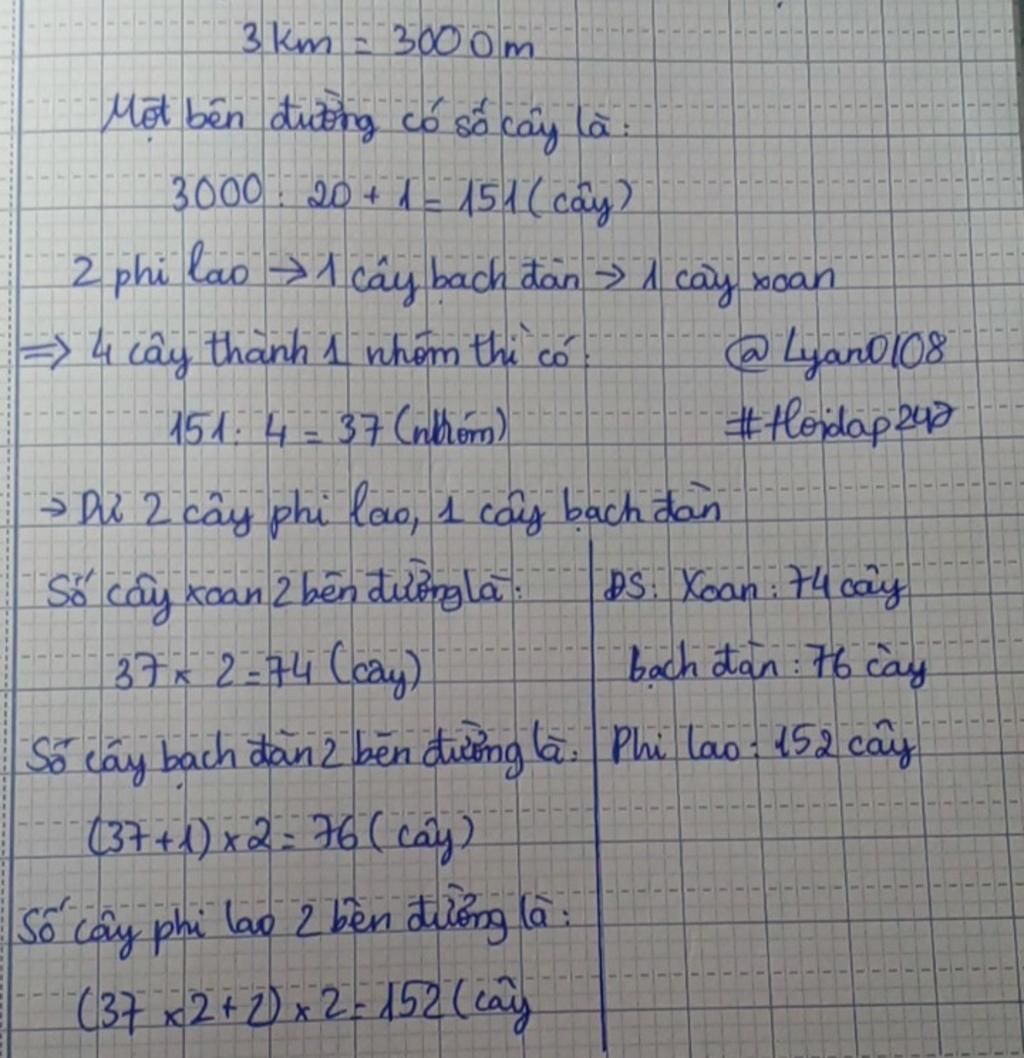 3 km = 3000 m
Một bên đường có số cây là:
3000 : 20 + 1 = 151 (cây)
2 phi lao → 1 cây bạch đàn → 1 cây xoan
⇒ 4 cây thành 1 nhóm thì có:
@Lyan0108
151 : 4 = 37 (nhóm)
#Hoidap247
→ Dư 2 cây phi lao, 1 cây bạch đàn
Số cây xoan 2 bên đường là:
37 × 2 = 74 (cây)
Số cây bạch đàn 2 bên đường là:
(37 + 1) × 2 = 76 (cây)
Số cây phi lao 2 bên đường là:
(37 × 2 + 2) × 2 = 152 (cây
ĐS: Xoan : 74 cây
bạch đàn : 76 cây
Phi lao : 152 cây